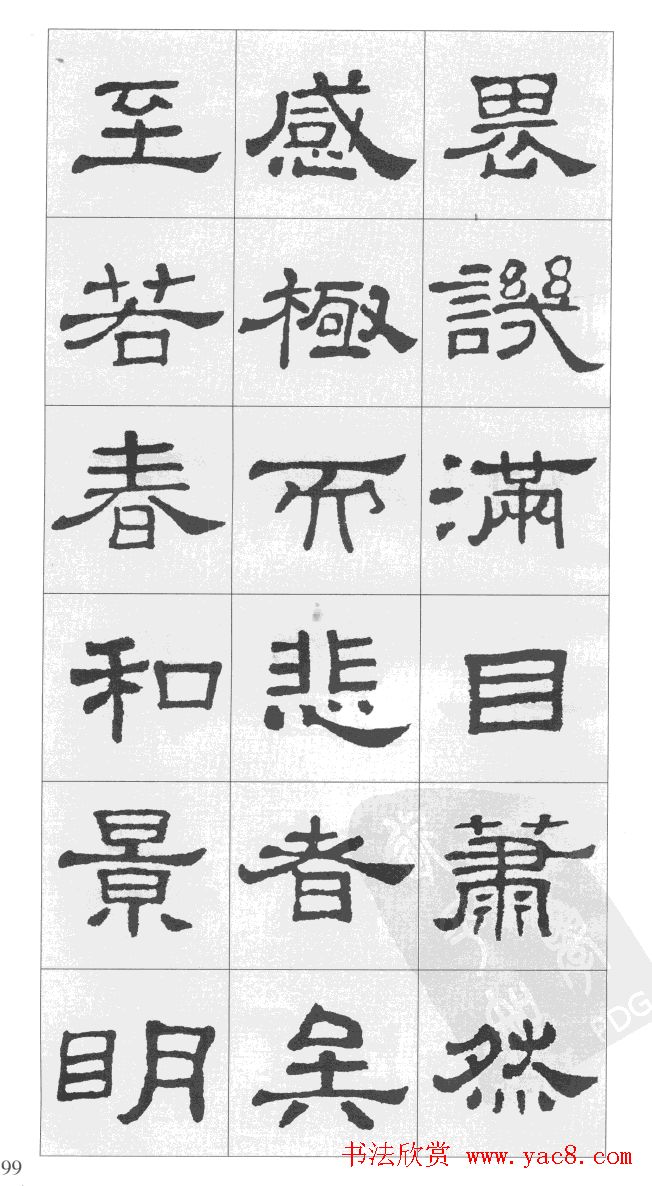 畏譏滿目蕭然
感極而悲者矣
至若春和景明
99
书法欣赏 www.yac8.com
PDG